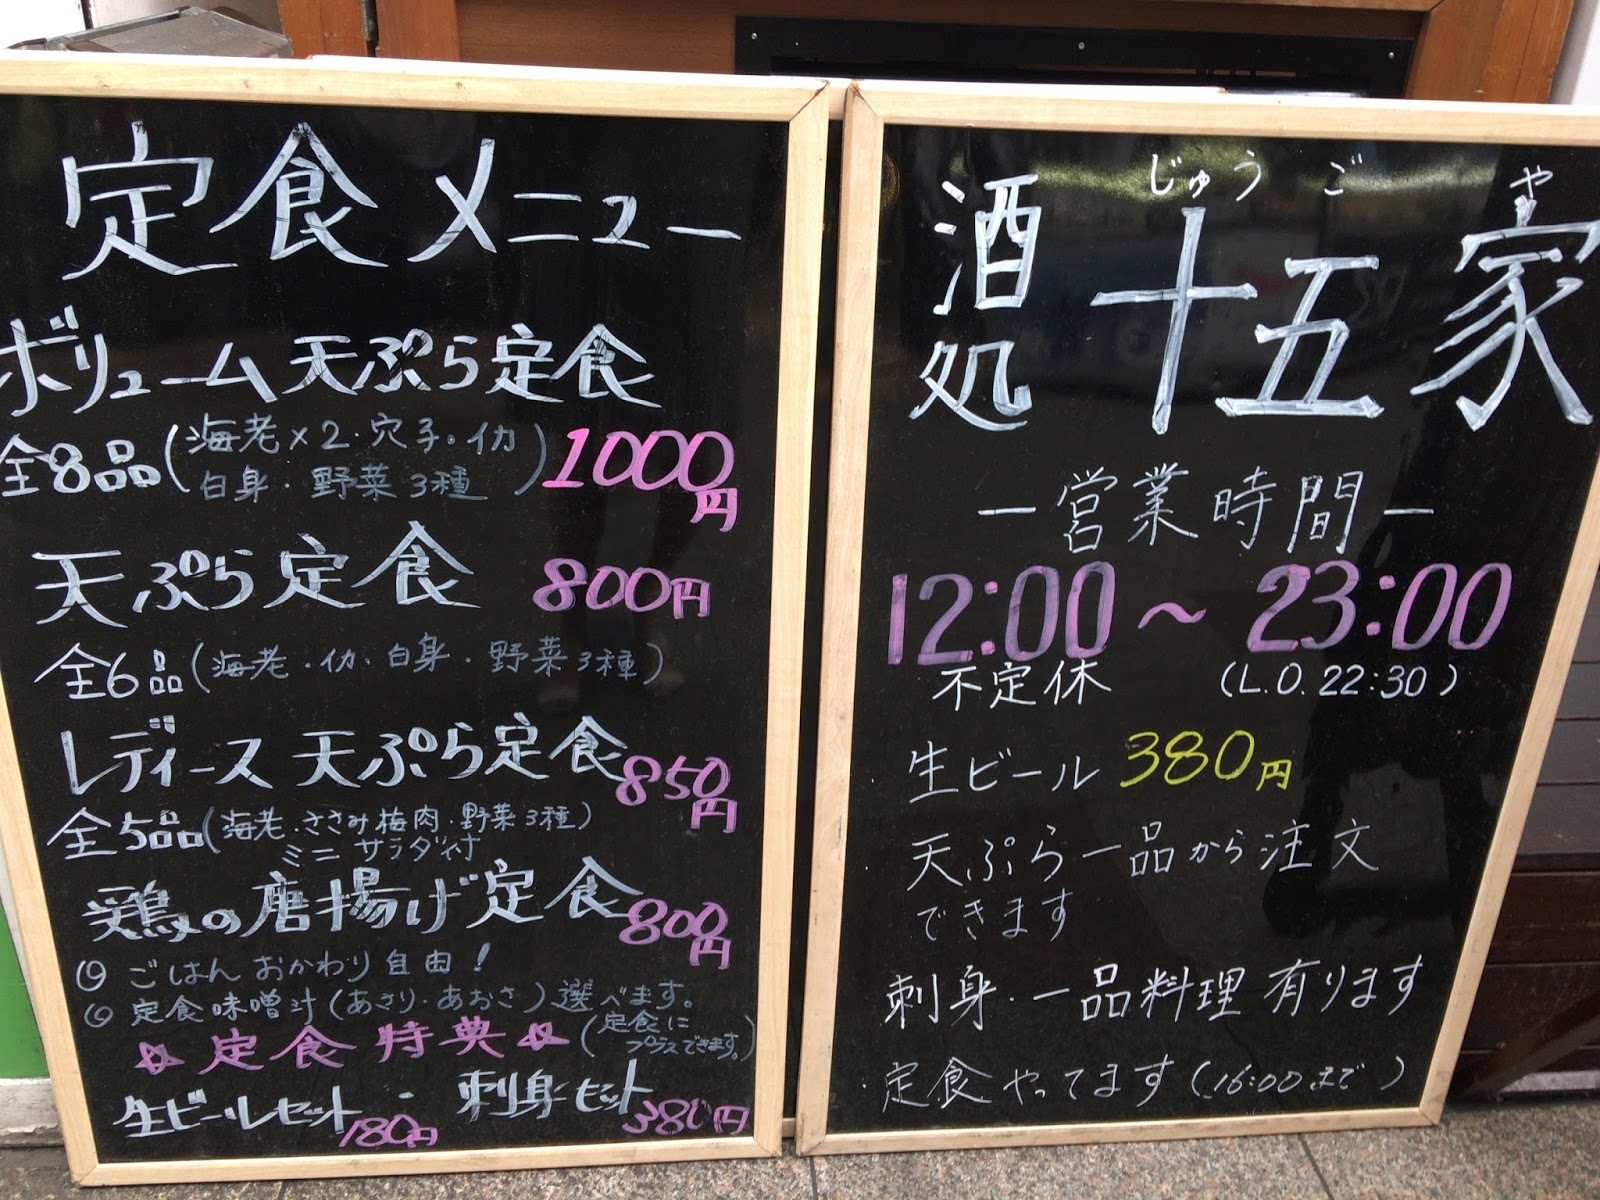 定食メニュー
ボリューム天ぷら定食
全8品(海老×2・穴子・イカ
白身・野菜3種) 1000円
天ぷら定食 800円
全6品(海老・イカ・白身・野菜3種)
レディース天ぷら定食 850円
全5品(海老・ささみ梅肉・野菜3種)
ミニサラダ付
鶏の唐揚げ定食 800円
ごはんおかわり自由!
定食味噌汁(あさり・あおさ)選べます。
☆定食特典☆(定食に
プラスできます。)
生ビールセット 180円・刺身セット 380円
じゅうごや
酒処 十五家
ー営業時間ー
12:00~23:00
不定休 (L.O.22:30)
生ビール 380円
天ぷら一品から注文
できます
刺身・一品料理有ります
定食やってます(16:00まで)